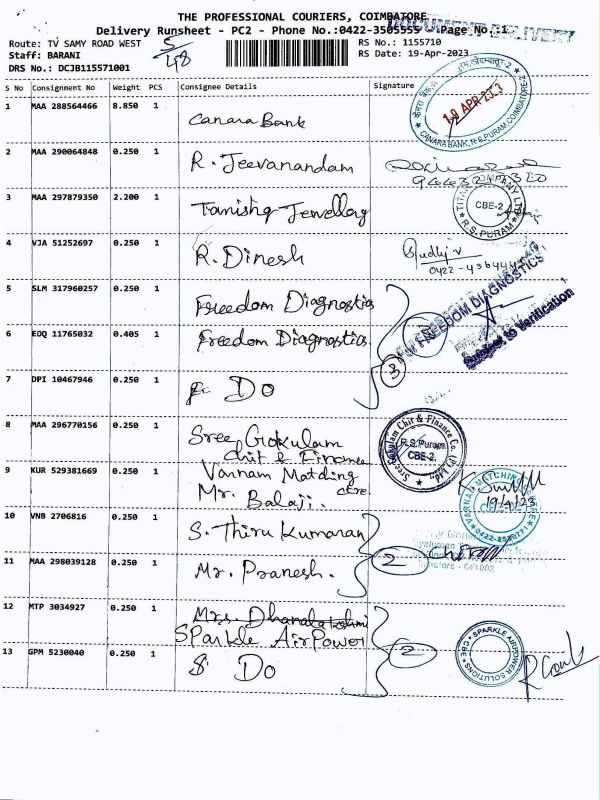 THE PROFESSIONAL COURIERS, COIMBATORE
DOCUMENT DELIVERY
Delivery Runsheet - PC2 - Phone No.:0422-3505555 Page No.:1
Route: TV SAMY ROAD WEST
Staff: BARANI
DRS No.: DCJB1155571001
5/48
RS No.: 1155710
RS Date: 19-Apr-2023
S No Consignment No Weight PCS Consignee Details Signature
1 MAA 288564466 8.850 1 Canara Bank
19 APR 2023
CANARA BANK, R.S.PURAM, COIMBATORE-2
2 MAA 290064848 0.250 1 R. Jeevanandam
3 MAA 297879350 2.200 1 Tanishq Jewellery
CBE-2
R.S.PURAM
4 VJA 51252697 0.250 1 R. Dinesh
5 SLM 317960257 0.250 1 Freedom Diagnostics
For FREEDOM DIAGNOSTICS
Subject to Verification
6 EDQ 11765032 0.405 1 Freedom Diagnostics
3
7 DPI 10467946 0.250 1 Do
8 MAA 296770156 0.250 1 Sree Gokulam
Chit & Finance
Sree Gokulam Chit & Finance Co. (P) Ltd.,
R.S.Puram
CBE-2.
9 KUR 529381669 0.250 1 Varnam Matching
Centre
Mr. Balaji.
19/4/23
10 VNB 2706816 0.250 1 S. Thiru Kumaran
11 MAA 298039128 0.250 1 Mr. Pranesh.
2
12 MTP 3034927 0.250 1 Mrs. Dhanalakshmi
Sparkle AirPower
2
SPARKLE AIRPOWER SOLUTIONS
CBE
13 GPM 5230040 0.250 1 Do